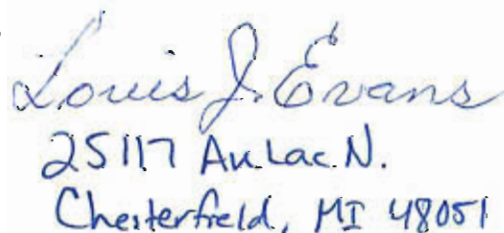 Louis J. Evans
25117 Au Lac N.
Chesterfield, MI 48051